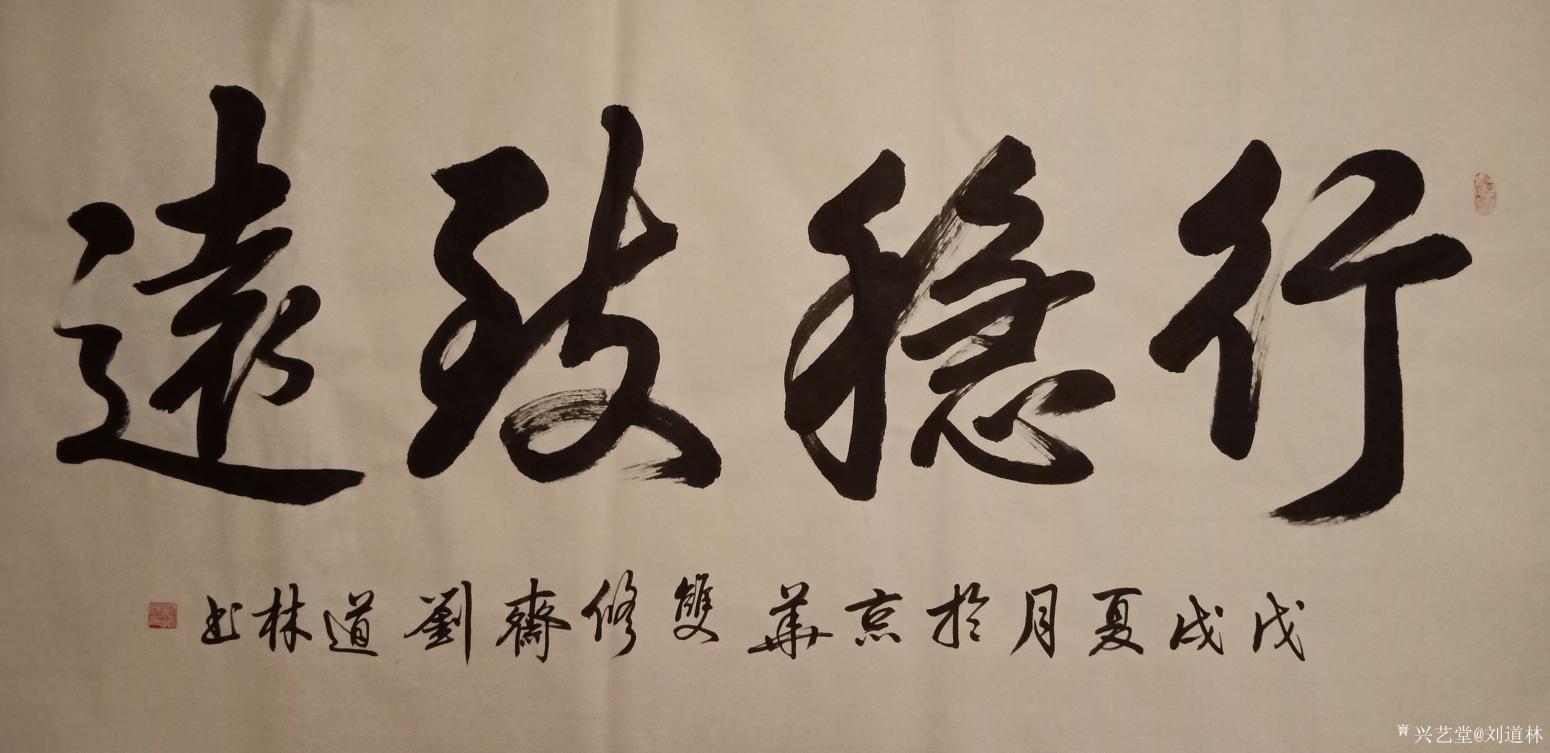 行稳致遠
戊戌夏月於京華雙修齋劉道林书
兴艺堂@刘道林